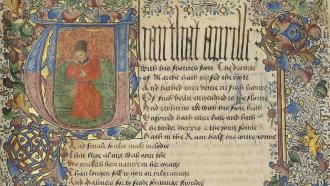 Whan that Aprille
With his shoures sote The drought
of Marche hath perced the rote
And bathed euery veyne in such licoure
Of such vertu engendred is the floure
Enspired hath euery holt and heth
The tendre croppes & the yong sonne
Hath in the Ram half his cours yronne
And smale foules make melodie
That slepe al nyght with open yee
So priketh hem nature in her corage
Than longen folk to gon on pilgrimage
And palmers for to seche straunge strondes